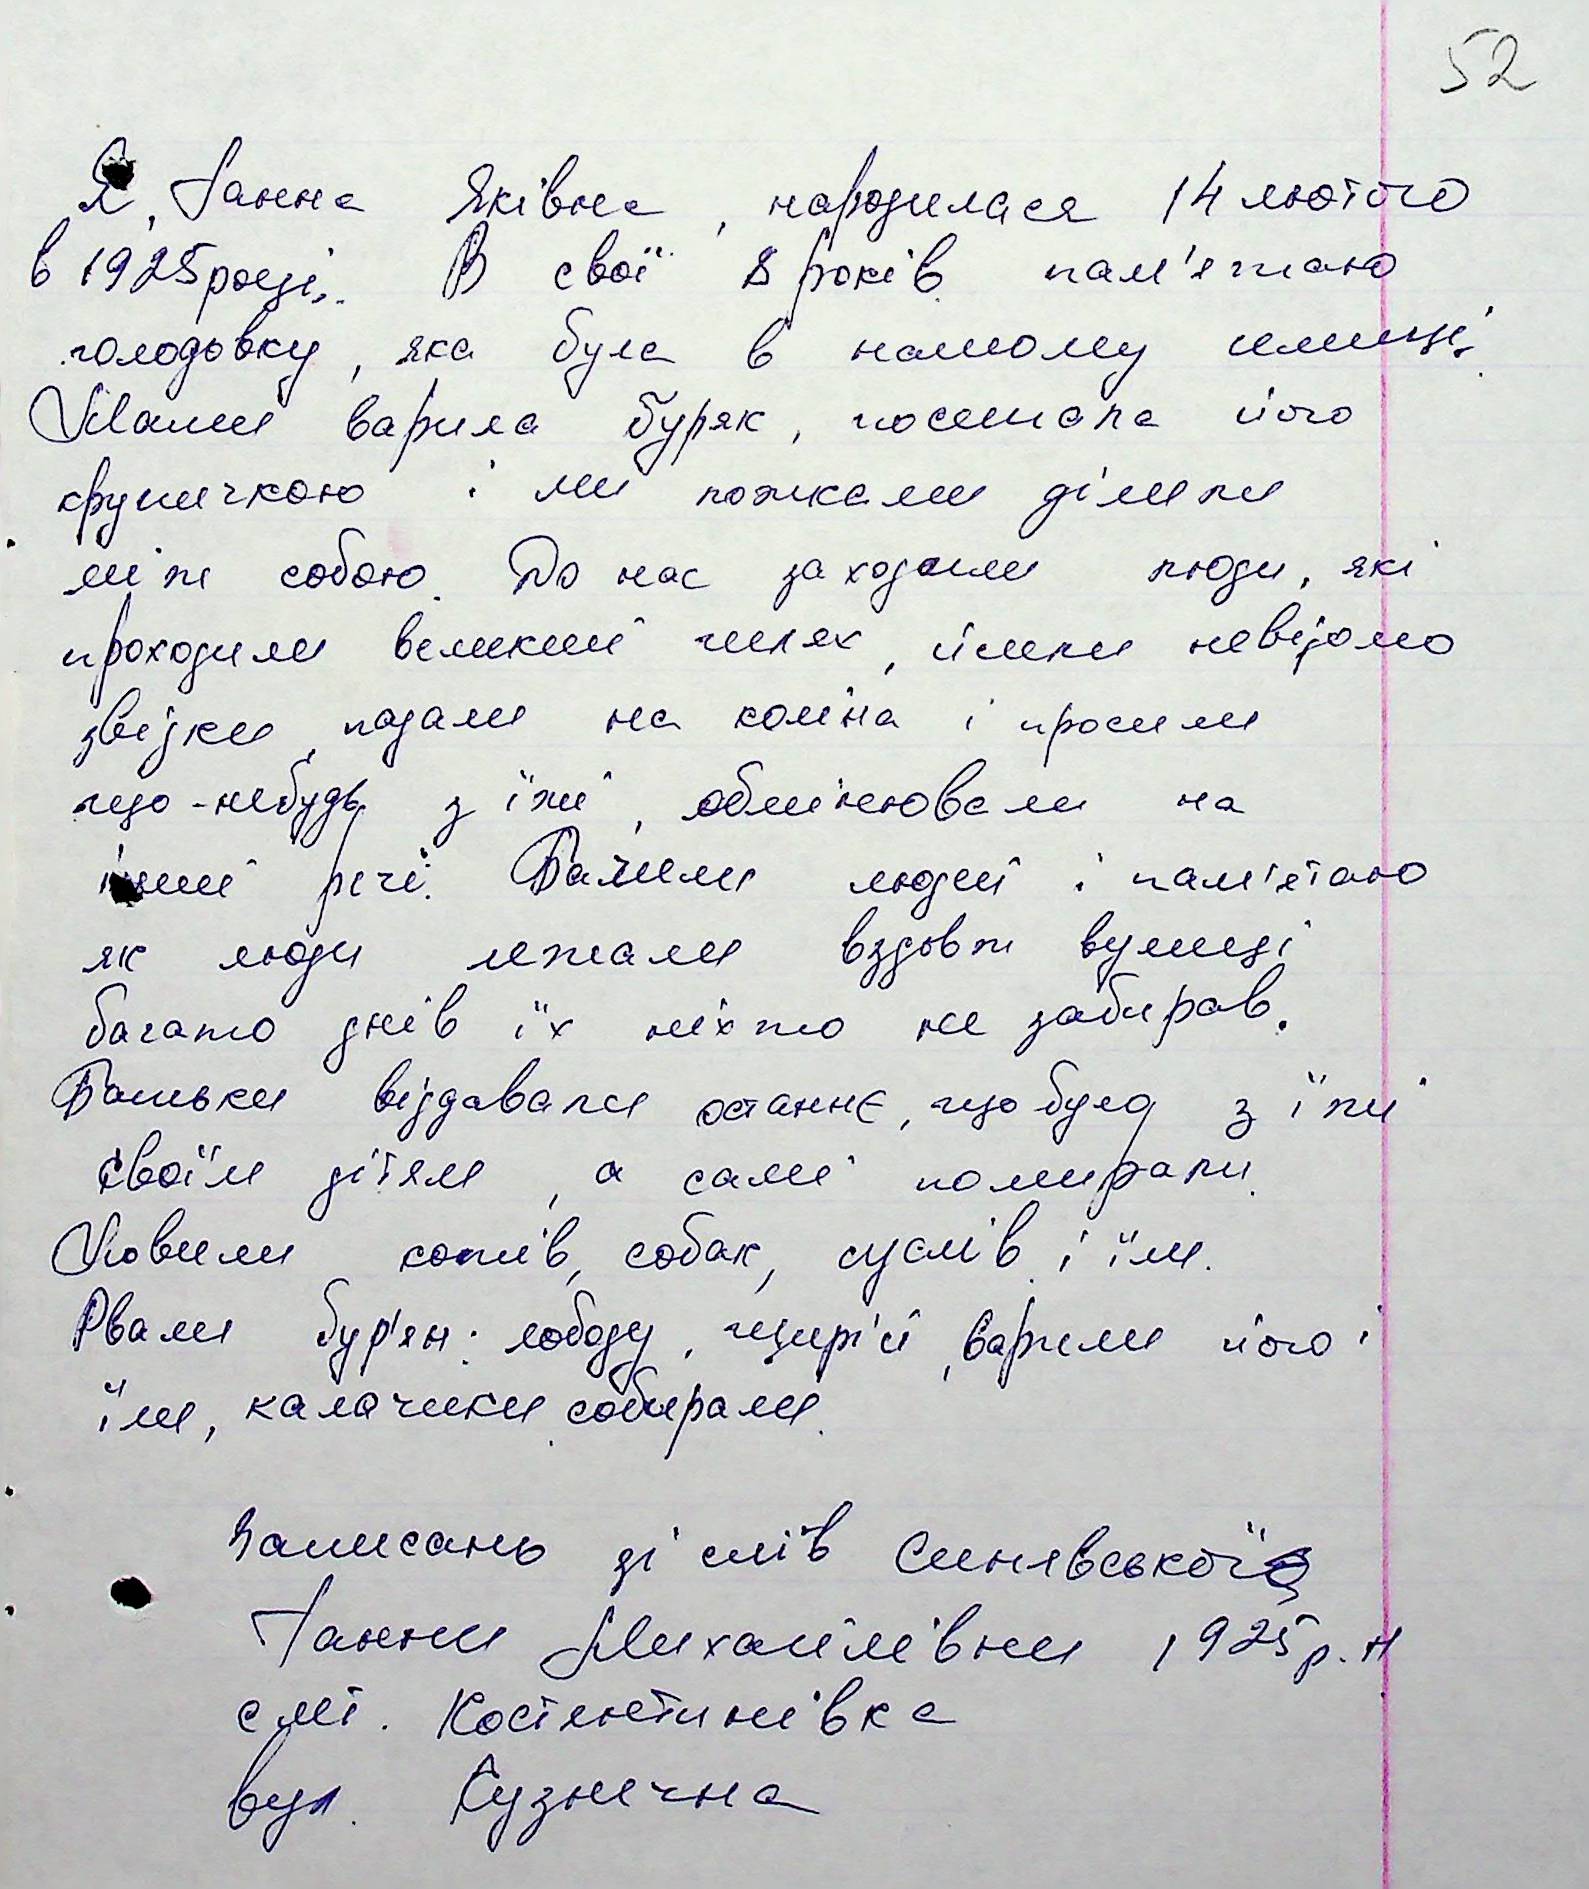 52
Я, Ганна Яківна, народилася 14 лютого
в 1925 році. В свої 8 років пам'ятаю
голодовку, яка була в нашому селищі.
Мами варила буряк, посипала його
крупичкою і ми ложками ділили
між собою. До нас заходили люди, які
проходили великий шлях, йшли невідомо
звідки, падали на коліна і просили
що-небудь з їжі, обмінювали на
інші речі. Бачили людей і пам'ятаю
як люди лежали вздовж вулиці
багато днів їх ніхто не забирав.
Батьки віддавали останнє, що було з їжі
своїм дітям, а самі помирали.
Ловили котів, собак, суслів і їли.
Рвали бур'ян: лободу, щирій, варили його і
їли, калачики собирали.
Записано зі слів Синявської
Ганни Михайлівни 1925 р. н
смт. Костянтинівка
вул. Кузнечна